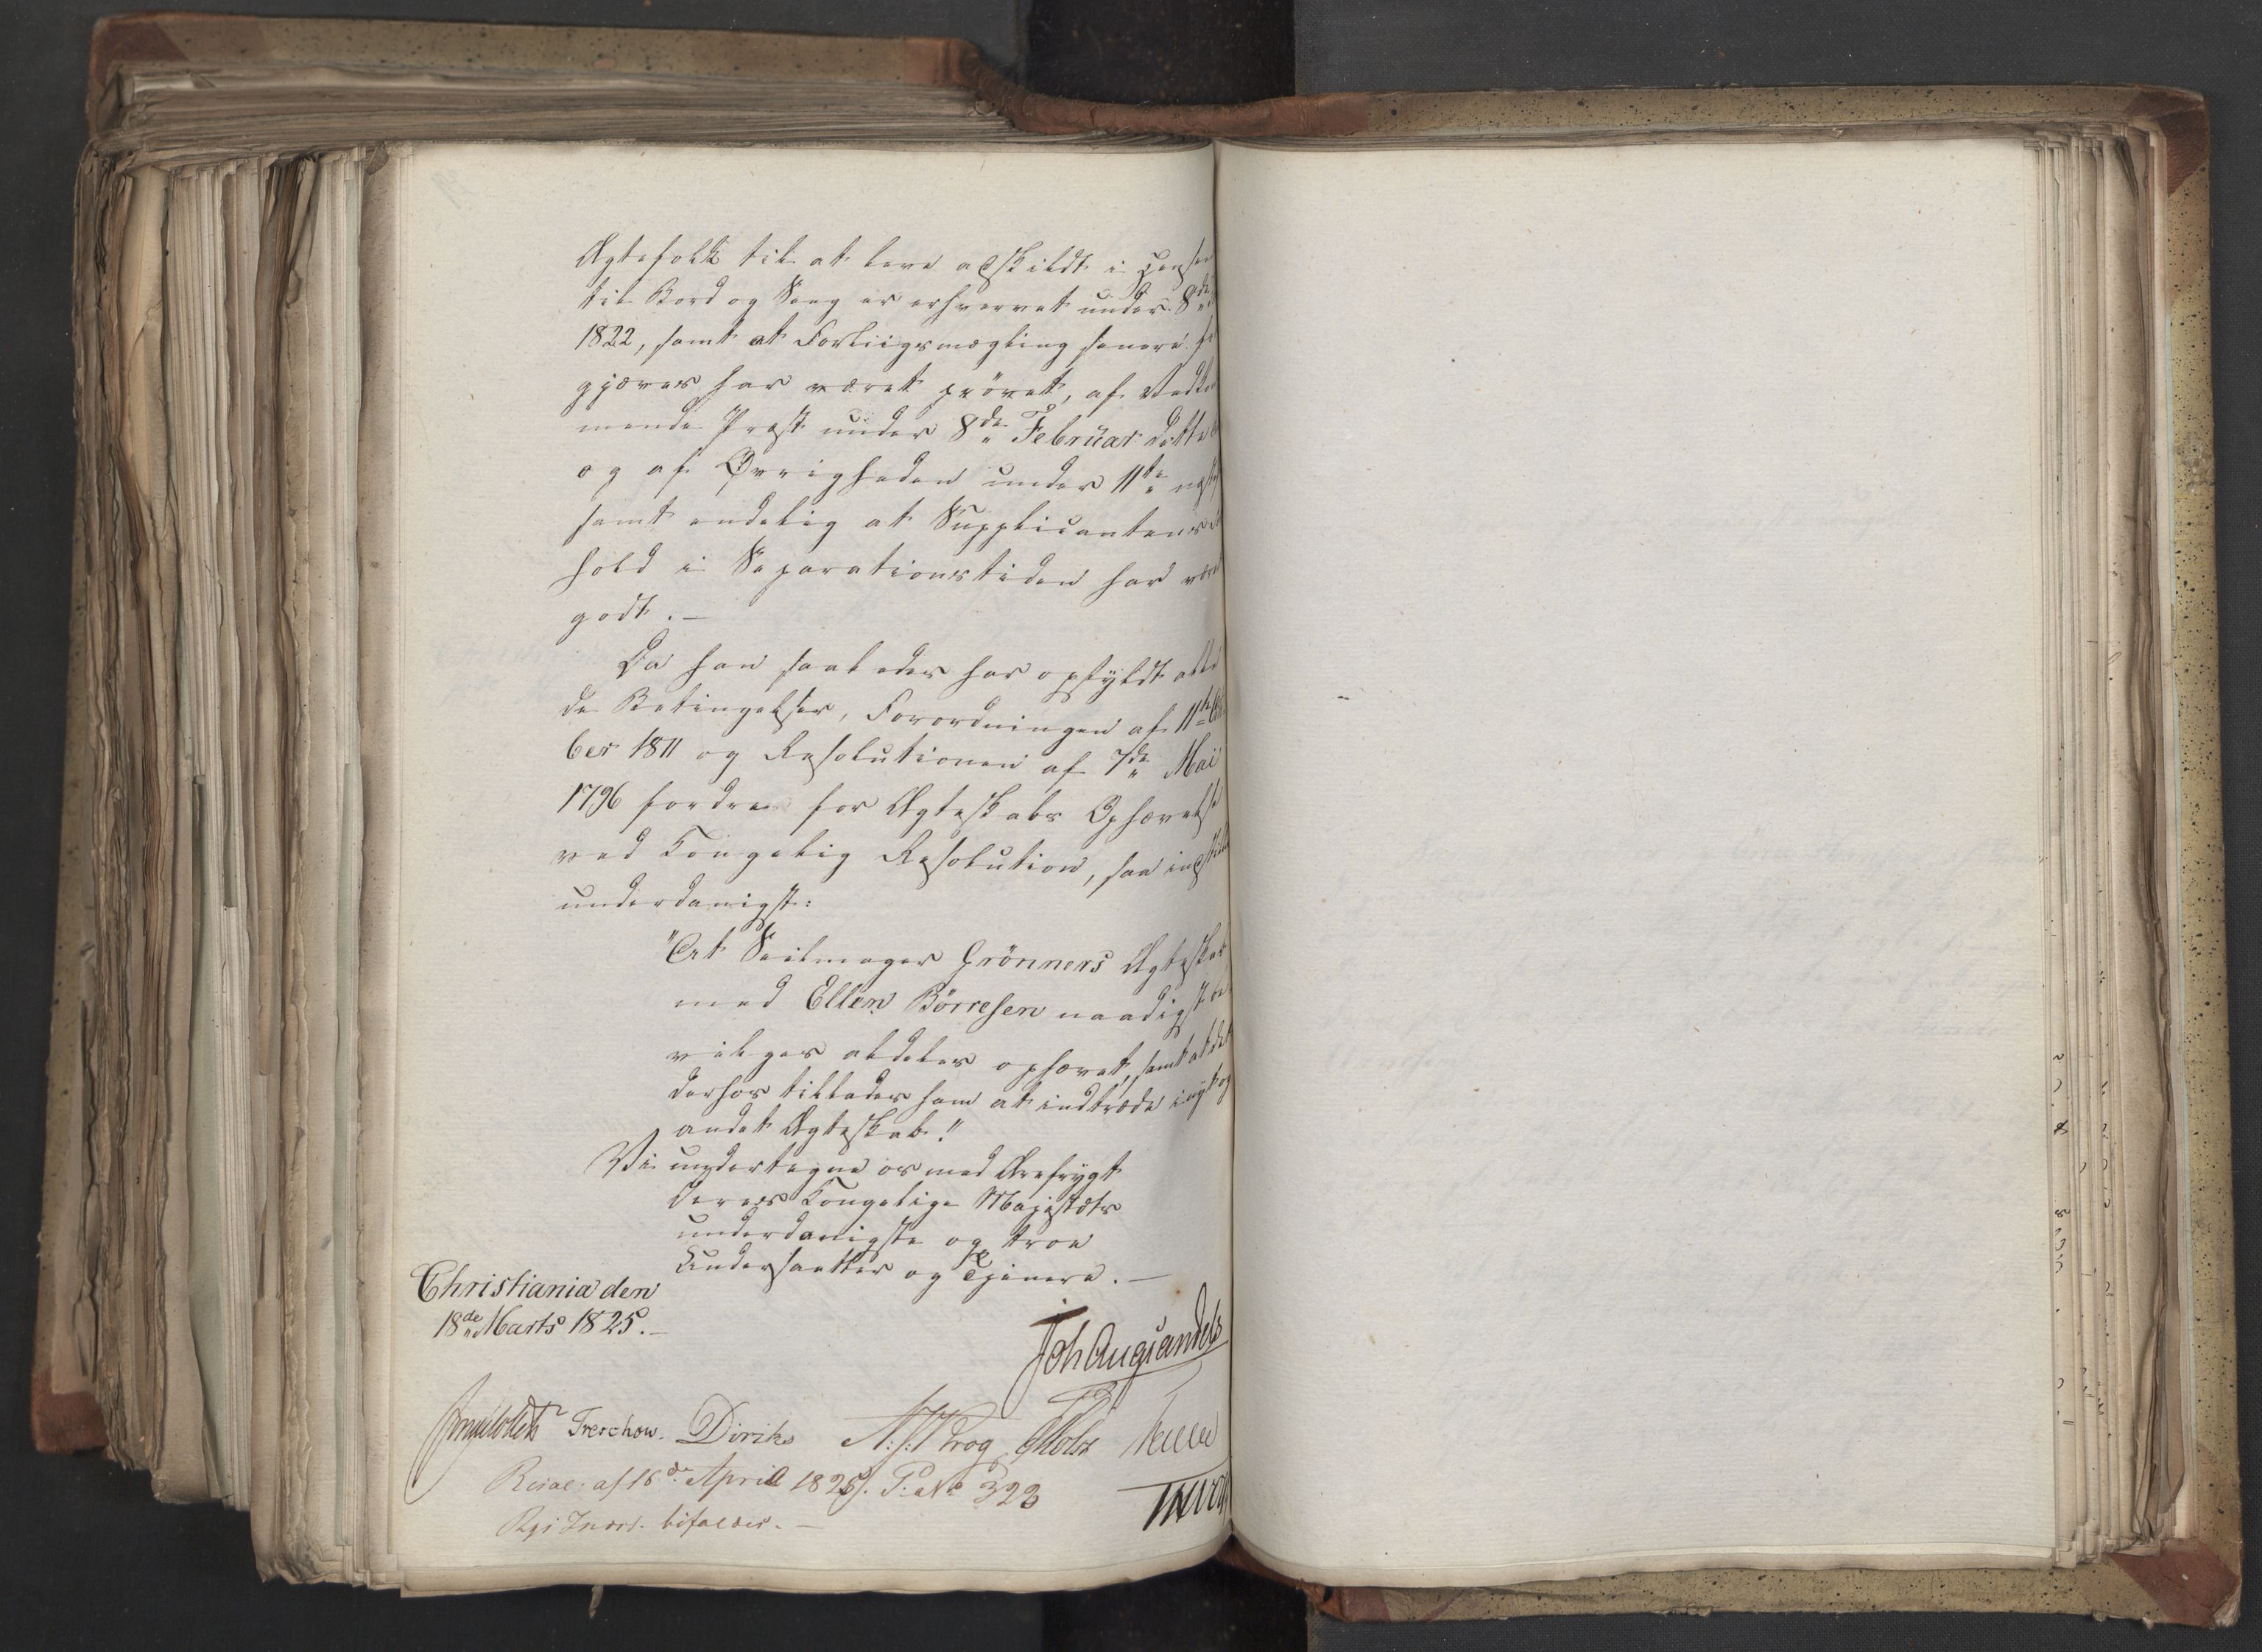 Ægtefolk til at leve adskildt i Henseende
til Bord og Seng er erhvervet under 8de
1822, samt at Forliigsmægling senere
gjæves har været prövet, af Vedkom
mende Præst under 8de Februar dette
og af Øvrigheden under 11te næstefter
samt endelig at Supplicantens For
hold i Separationstiden har været
godt. –
Da han saaledes har opfyldt alle
de Betingelser, Forordningen af 11te Octo
ber 1811 og Resolutionen af 7de Mai
1796 fordre for Ægteskabs Ophævelse
ved Kongelig Resolution, saa indstilles
underdanigst:
"At Seilmager Grönners Ægteskab
med Ellen Börresen naadigst
vilges aldeles ophævet, samt at det
derhos tillades ham at indtræde i nyt og
andet Ægteskab."
Vi undertegne os med Ærefrygt
Deres Kongelige Majestæts
underdanigste og troe
Undersaatter og Tjenere. –
Christiania den
18de Marts 1825. –
Joh Aug Sandels
Treschow. Diriks Krog
Resol: af 16de April 1825. P. No 323
Rgs Indst. bifaldes. –